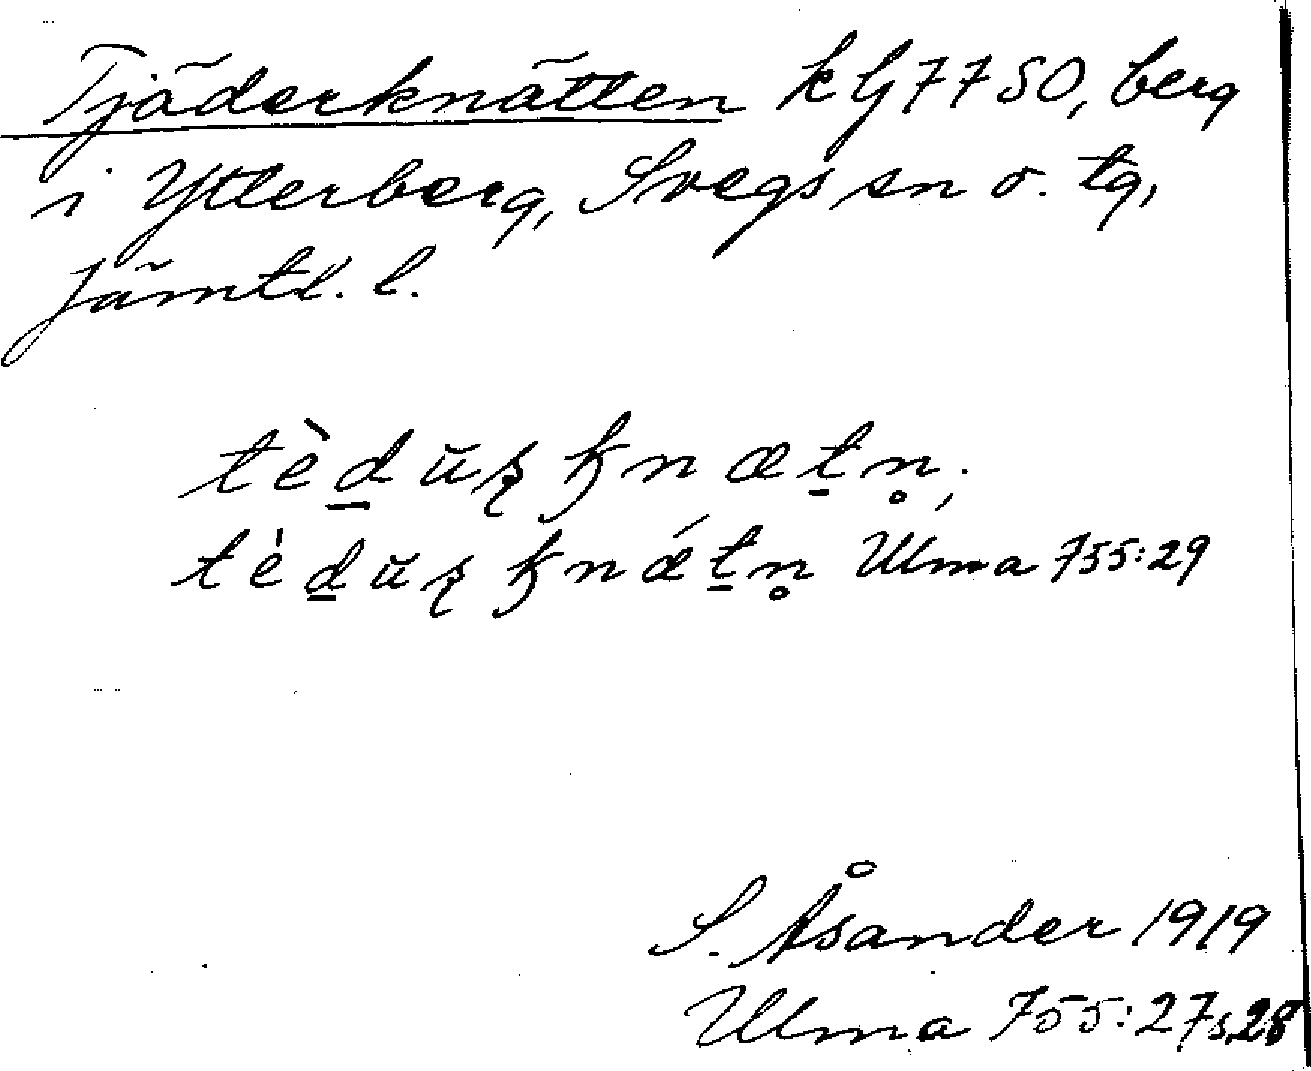 Tjäderknätten kG7750, berg
i Ytterberg, Svegs sn o. tg,
Jämtl. l.
tèd̲ŭꞩ ꝁnæt̲n̥,
tèd̲ŭꞩ ꝁnǽt̲n̥ Ulma 755:29
S. Åsander 1919
Ulma 755:27, 28